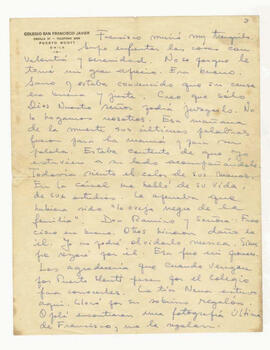 COLEGIO SAN FRANCISCO JAVIER
PUERTO MONTT
CHILE
Francisco murió muy tranquilo
Supo enfrentar las cosas con
Valentía y serenidad. No se porque le
tenía un gran aprecio. Era bueno.
Sano y estaba convencido que su causa
era buena y justa. Creo que sólo
Dios Nuestro Señor podrá juzgarlo. No
lo hagamos nosotros. Esa mañana
de la muerte sus últimas palabras
fueron para la mamá y para sus
Estaba contento de que yo
estuviera a su lado acompañándole.
Todavía siento el calor de sus manos.
En la cárcel me habló de su vida
de sus estudios. Le apenaba que
hubiera sido "la oveja negra de la
familia". Don Ramiro y Señora: Fran
cisco era bueno. Otros hicieron daño a
él. Yo no podré olvidarlo nunca. Siem
pre rezaré por él. Era fue mi
Les agradecería que cuando vengan
por Puerto Montt pasen por el Colegio
para conocerles. La tía Nena estuvo
aquí. Lloró por su sobrino regalón.
Ojalá encontraran una fotografía última
de Francisco, me la regalan.